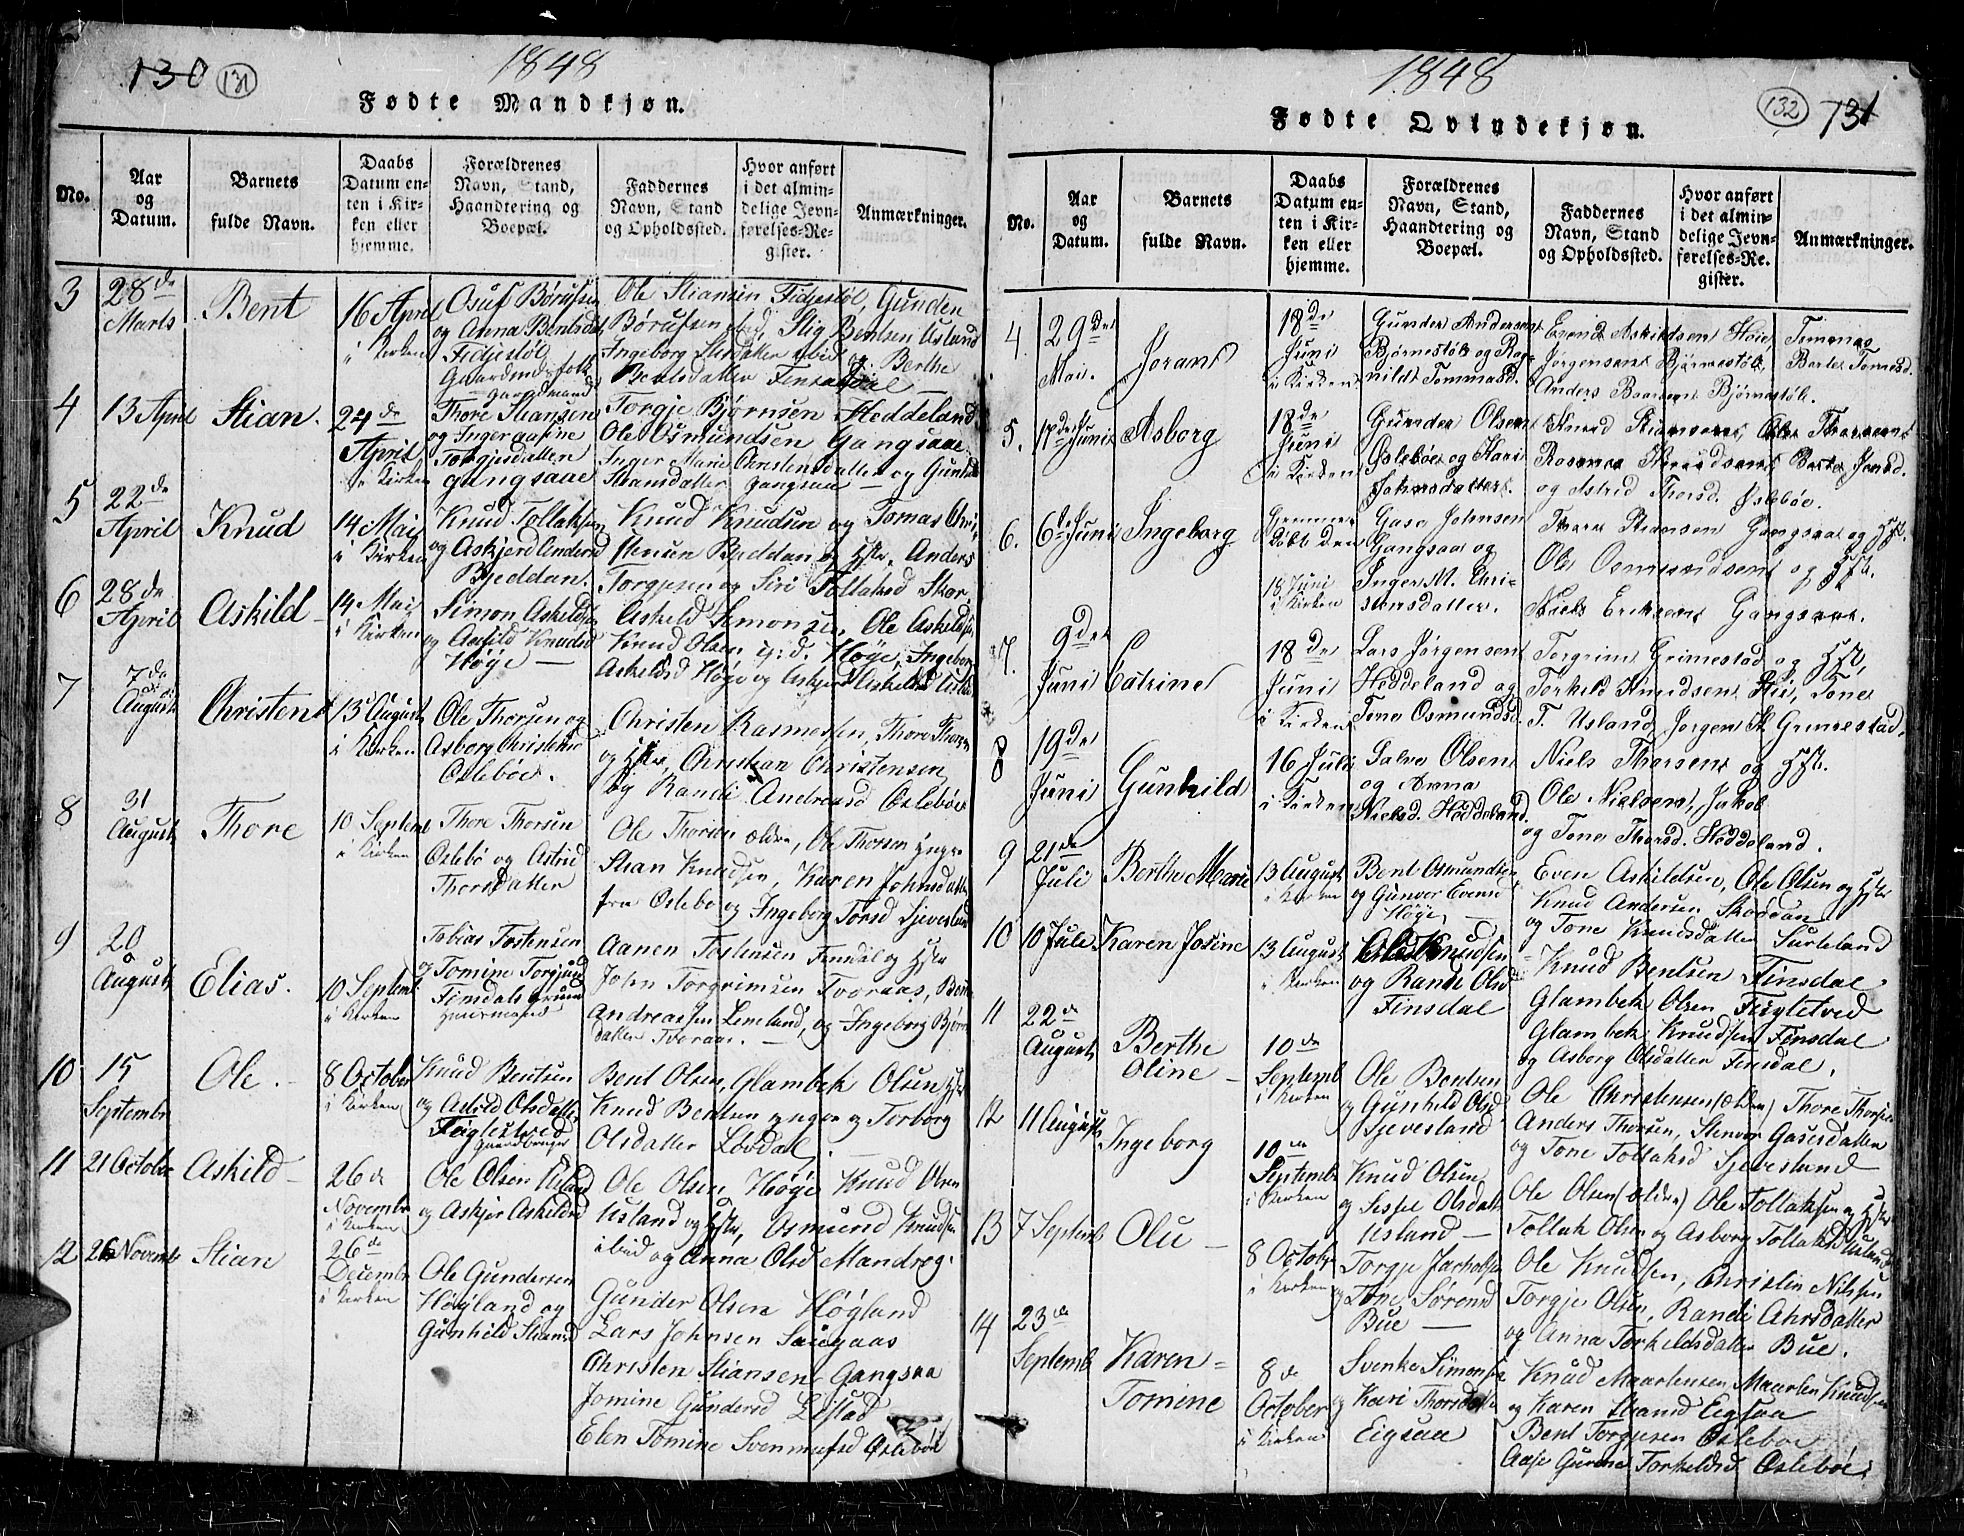 130 (131) 1848
Fødte Mandkjøn.
No.
Aar og Datum.
Barnets fulde Navn.
Daabs Datum enten i Kirken eller hjemme.
Forældrenes Navn, Stand, Haandtering og Boepæl.
Faddernes Navn, Stand og Opholdssted.
Hvor anført i det almindelige Jevnførelses-Register.
Anmærkninger.
3 28de Marts Bent 16 April i Kirken
Osuf Børufsen
og Anna Bentsdat
Fidjestøl
Gaardmandsfolk
Ole Stiansen Fidjestøl, Gunden
Børufsen ibid, Stig Bentsen Usland
Ingeborg ibid og Berthe
Bentsdatter Finsdal
4 13 April Stian. 24de April i Kirken
Thore Stiansen
og Ingeraasine
Torgjesdatter
Gangsaae
Torgje Bjørnsen Heddeland
Ole Osmundsen Gangsaae
Inger Marie Christensdatter og Gunhild
Stiansdatter Gangsaa
5 22de April Knud 14 Mai i Kirken
Knud Tollaksen
og Askjerd Andersd
Bjeddan.
Knud Knudsen og Tomas Chri-
stensen Bjeddan og Hst. Anders
Torgjesen og Siri Tollaksd Skor.
6 28de April Askild 14 Mai i Kirken
Simon Askildsen
og Aasild Knudsd
Høye
Askeld Simonsen, Ole Askeldsen
Knud Olsen ibid. Høye, Ingeborg
Askeldsd Høge og Askjer Askeldsd
7 7de August Christen 13 August i Kirken
Ole Thorsen og
Asborg Christensd
Oslebøe.
Christen Rasmussen, Thore Thorsen
og Hstr, Christian Christensen
og Randi Andreasd Oslebøe
8 31 August Thore 10 Septembr i Kirken
Thore Thorsen
Oslebø og Astrid
Thorsdatter
Ole Thorsen ældre, Ole Thorsen yngre
Stian Knudsen, Karen Johnsdatter
fra Oslebø og Ingeborg Torsd Sjevesland
9 20 August Elias. 10 Septembr i Kirken
Tobias Tostensen
og Tomine Torgjusd
Finsdals grund
Huusmand
Aanen Tostensen Finsdal og Hstr
John Torgrimsen Tvoraas, Bent
Andreassen Leneland, og Ingeborg Bjørns
datter Tvoraas.
10 15 Septembr Ole. 8 October i Kirken
Knud Bentsen
og Astrid Olsdatter
Fuglestved
Gaardbruger
Bent Olsen, Glambek Olsen Hstr
Knud Bentsen yngere og Torborg
Olsdatter Lovdal
11 21 October Askild 26de Novembr i Kirken
Ole Olsen Usland
og Askjer Askeldsd
Ole Olsen Høge Knud Olsen
Usland og Hstr, Osmund Knudsen
ibid og Anna Olsd Mandreg.
12 26 Novembr Stian 26de Decembr i Kirken
Ole Gundersen
Høgland og
Gunhild Stiansd
Gunder Olsen Høgland
Lars Johnsen Saigaas
Christen Stiansen Gangsaa
Jomine Gundersd Leistad
Elen Tomine Svenningsd Oslebøe
1848 (132) 131
Fødte Qvindekjøn.
No.
Aar og Datum.
Barnets fulde Navn.
Daabs Datum enten i Kirken eller hjemme.
Forældrenes Navn, Stand, Haandtering og Boepæl.
Faddernes Navn, Stand og Opholdssted.
Hvor anført i det almindelige Jevnførelses-Register.
Anmærkninger.
4. 29de Mai. Joran 18de Juni i Kirken
Gunder Andersen
Bjørnestøl og Rag-
nild Tommasd.
Evind Askildsen Høie, Tommas
Jørgensen Bjørnestøl, Berte Tomesd.
Anders Bjørnestøl.
5. 17de Juni Asborg 18de Juni i Kirken
Gunder Olsen
Oslebøe og Kari
Johnsdatter.
Knud Stiansen, Ole Thorsen
Rasmus Knudsen Berte Jensd.
og Astrid Thorsd. Oslebøe.
6. 6te Juni Ingeborg Hjemmedøbt den 18 Juni i Kirken
Gase Johnsen
Gangsaa og
Inger M. Chri-
stensdatter.
Thore Stiansen Gangsaa og Hst.
Ole Osmundsen og Hst.
Niels Eriksen Gangsaae.
7. 9de Juni Catrine 18de Juni i Kirken
Lars Jørgensen
Heddeland og
Tone Osmundsd.
Torgrim Grimestad og Hst,
Torkild Knudsen Høie, Tone
T. Usland, Jørgen Grimestad.
8 19de Juni Gunhild 16 Juli i Kirken
Salve Olsen
og Anna
Nielsd. Heddeland
Niels Thorsen og Hst.
Ole Nielsen, Jakob
og Tone Thorsd. Heddeland.
9 21de Juli Berthe Marie 13 August i Kirken
Bent Osmundsen
og Gunvor Evensd
Høge
Even Askildsen, Ole Olsen og Hstr
Knud Andersen Skoddan
og Tone Knudsdatter Surteland
10 10 Juli Karen Josine 13 August i Kirken
Knudsen
og Randi Olsd
Finsdal
Knud Bentsen Finsdal
Glambek Olsen Fuglstved
Glambek Knudsen Finsdal
og Asborg Olsdatter Finsdal.
11 22de August Berthe Oline 10de Septemb i Kirken
Ole Bentsen
og Gunhild Olsd
Sjevesland
Ole Christensen (ældre) Thore Thorsen
Anders Thorsen, Stenvor Gasesdatter
og Tone Tollaksd Sjevesland
12 11 August Ingeborg 10de Septembr i Kirken
Knud Olsen
og Sissel Olsdatter
Usland
Ole Olsen (ældre) Ole Tollaksen og Hstr
Tollak Olsen og Asborg Tollaksd Usland
13 7 Septemb Olu 8 October i Kirken
Torgje Jarholsen
og Tone Sørensd
Bue
Ole Knudsen, Christin Nilssen
Torgje Olsen, Randi Ahrsdatter
og Anna Torkeldsdatter Bue.
14 23de Septemb Karen Tomine 8de October i Kirken
Svenke Simonsen
og Kari Thorsdatter
Eigsaa
Knud Maartensen, Maarten Knudsen
og Karen Stiansd Eigsaa
Bent Torgjusen Oslebøe
Aase Gurine Torkeldsd Oslebøe.